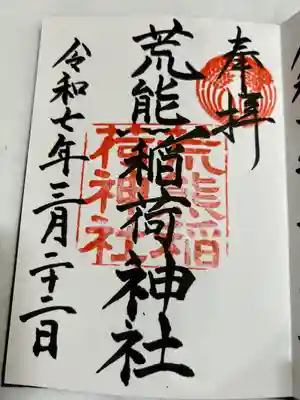 奉拝
荒熊稲荷神社
荒熊稲
荷神社
令和七年三月二十二日